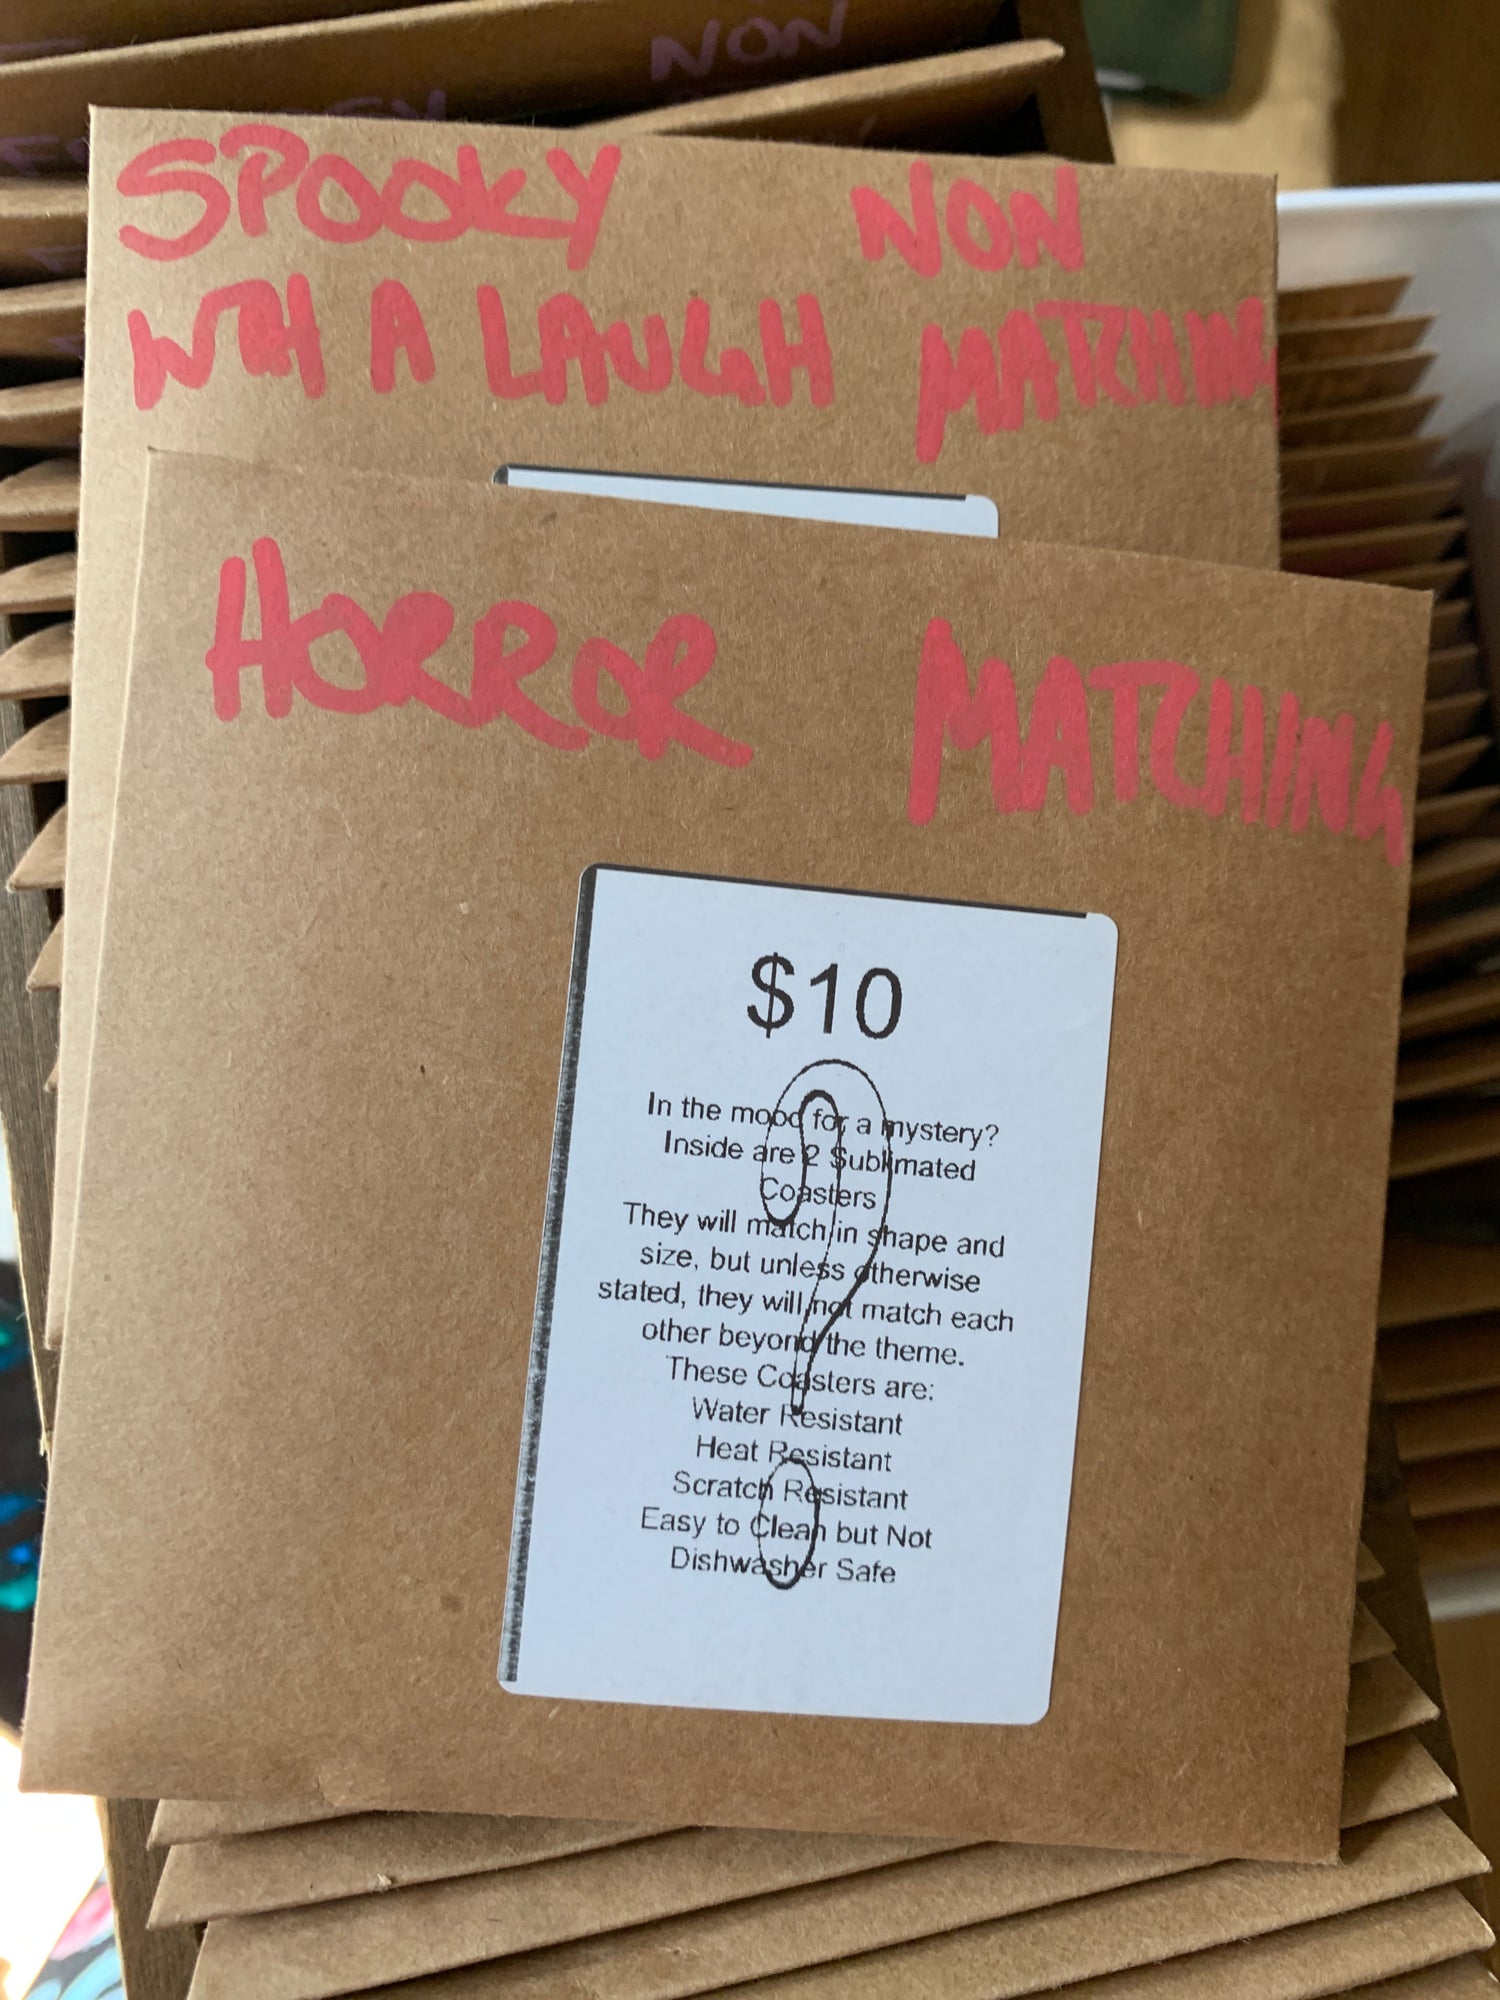 NON
SPOOKY NON
WITH A LAUGH MATCHING
HORROR MATCHING
$10
In the mood for a mystery?
Inside are 2 Sublimated
Coasters
They will match in shape and
size, but unless otherwise
stated, they will not match each
other beyond the theme.
These Coasters are:
Water Resistant
Heat Resistant
Scratch Resistant
Easy to Clean but Not
Dishwasher Safe